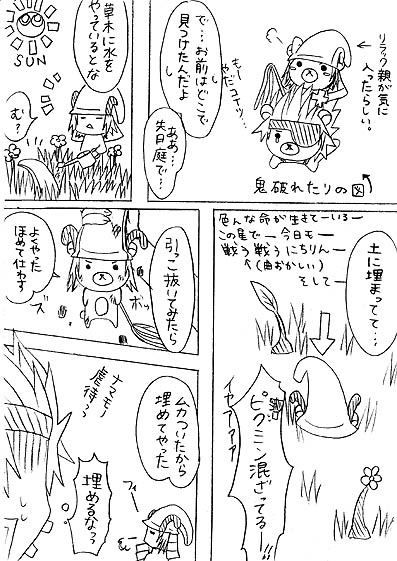 リラック親が気に
入ったらしい。
もー
やだコイツ…
鬼破れたりの図
で…お前はどこで
見つけたんだよ
ああ…
先日庭で…
草木に水を
やっているとな
SUN
む?
色んな命が生きてーいるー
この星でー今日もー
戦う戦うにちりんー
↑(曲おかしい)
そしてー
土に埋まってて…
ピクミン混ざってるー!!
イヤアアア
引っこ抜いてみたら
ボッ
ズ
よくやった
ほめて仕わす
ムカついたから
埋めてやった
ナマモノ
虐待っ?
埋めるなっ
フィー